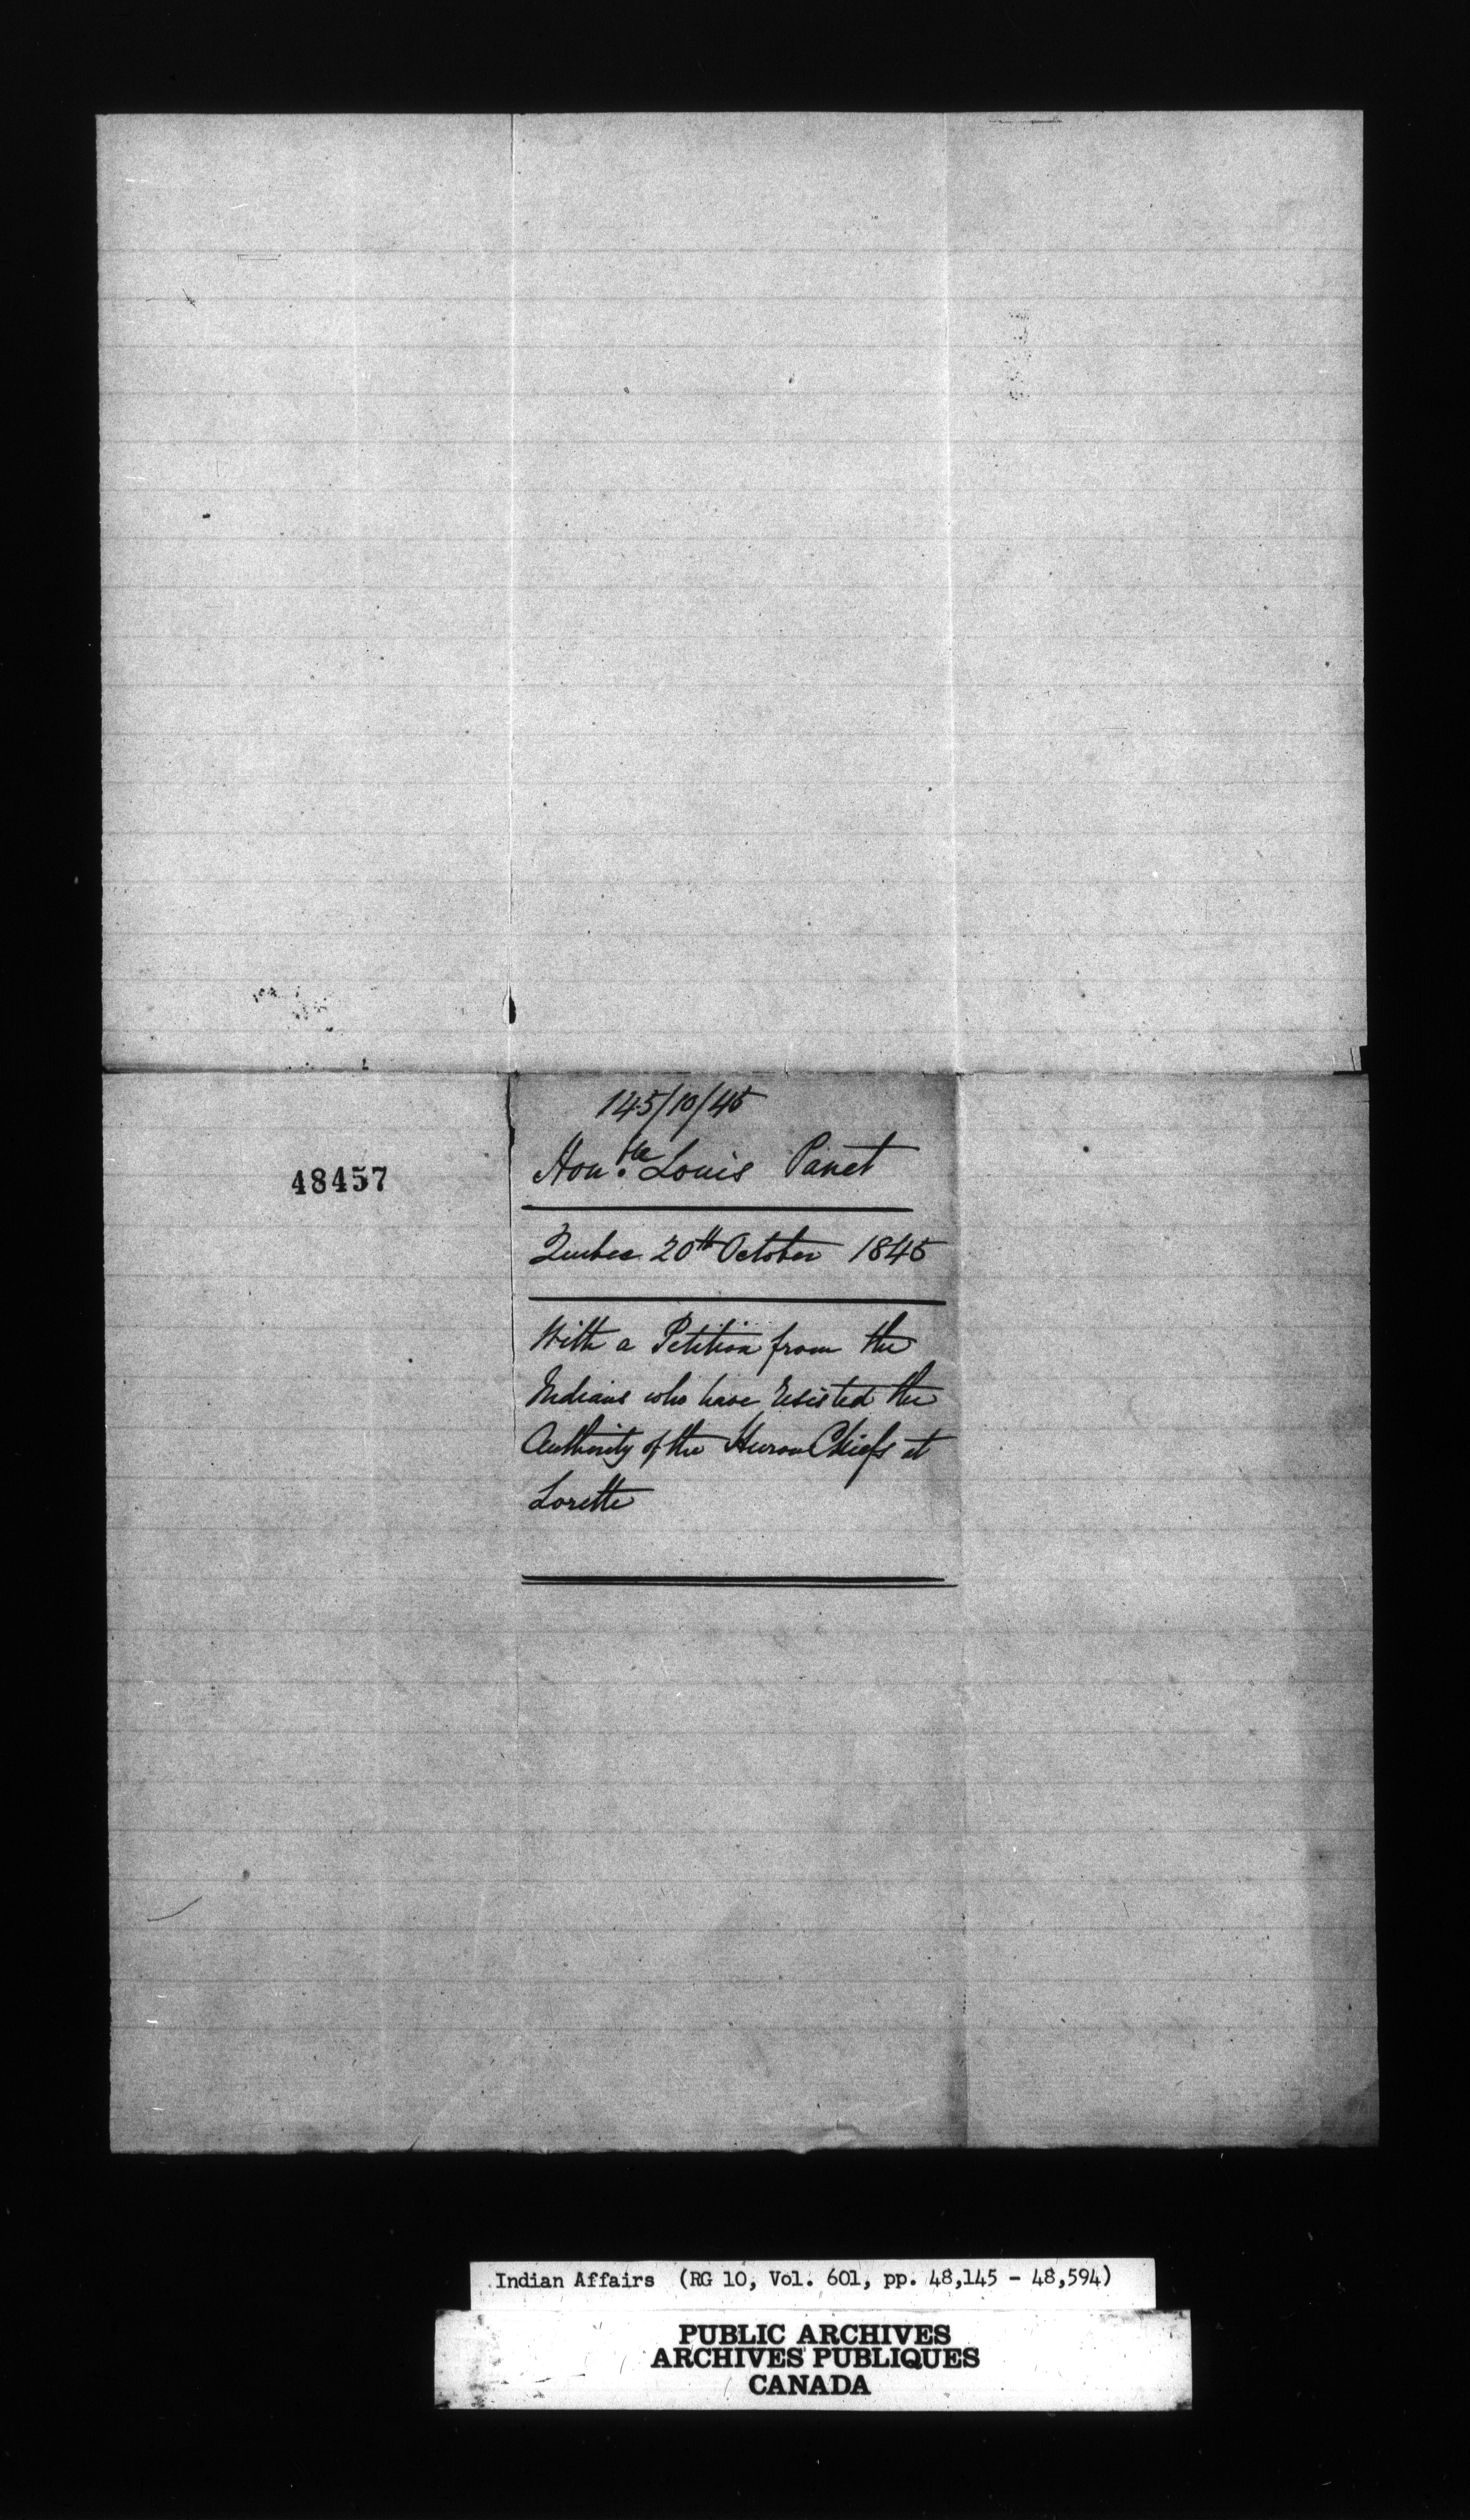 145/10/45
Hon.ble Louis Panet
Quebec 20th October 1845
With a Petition from the
Indians who have resisted the
Authority of the Huron Chiefs at
Lorette
48457
Indian Affairs (RG 10, Vol. 601, pp. 48,145 - 48,594)
PUBLIC ARCHIVES
ARCHIVES PUBLIQUES
CANADA